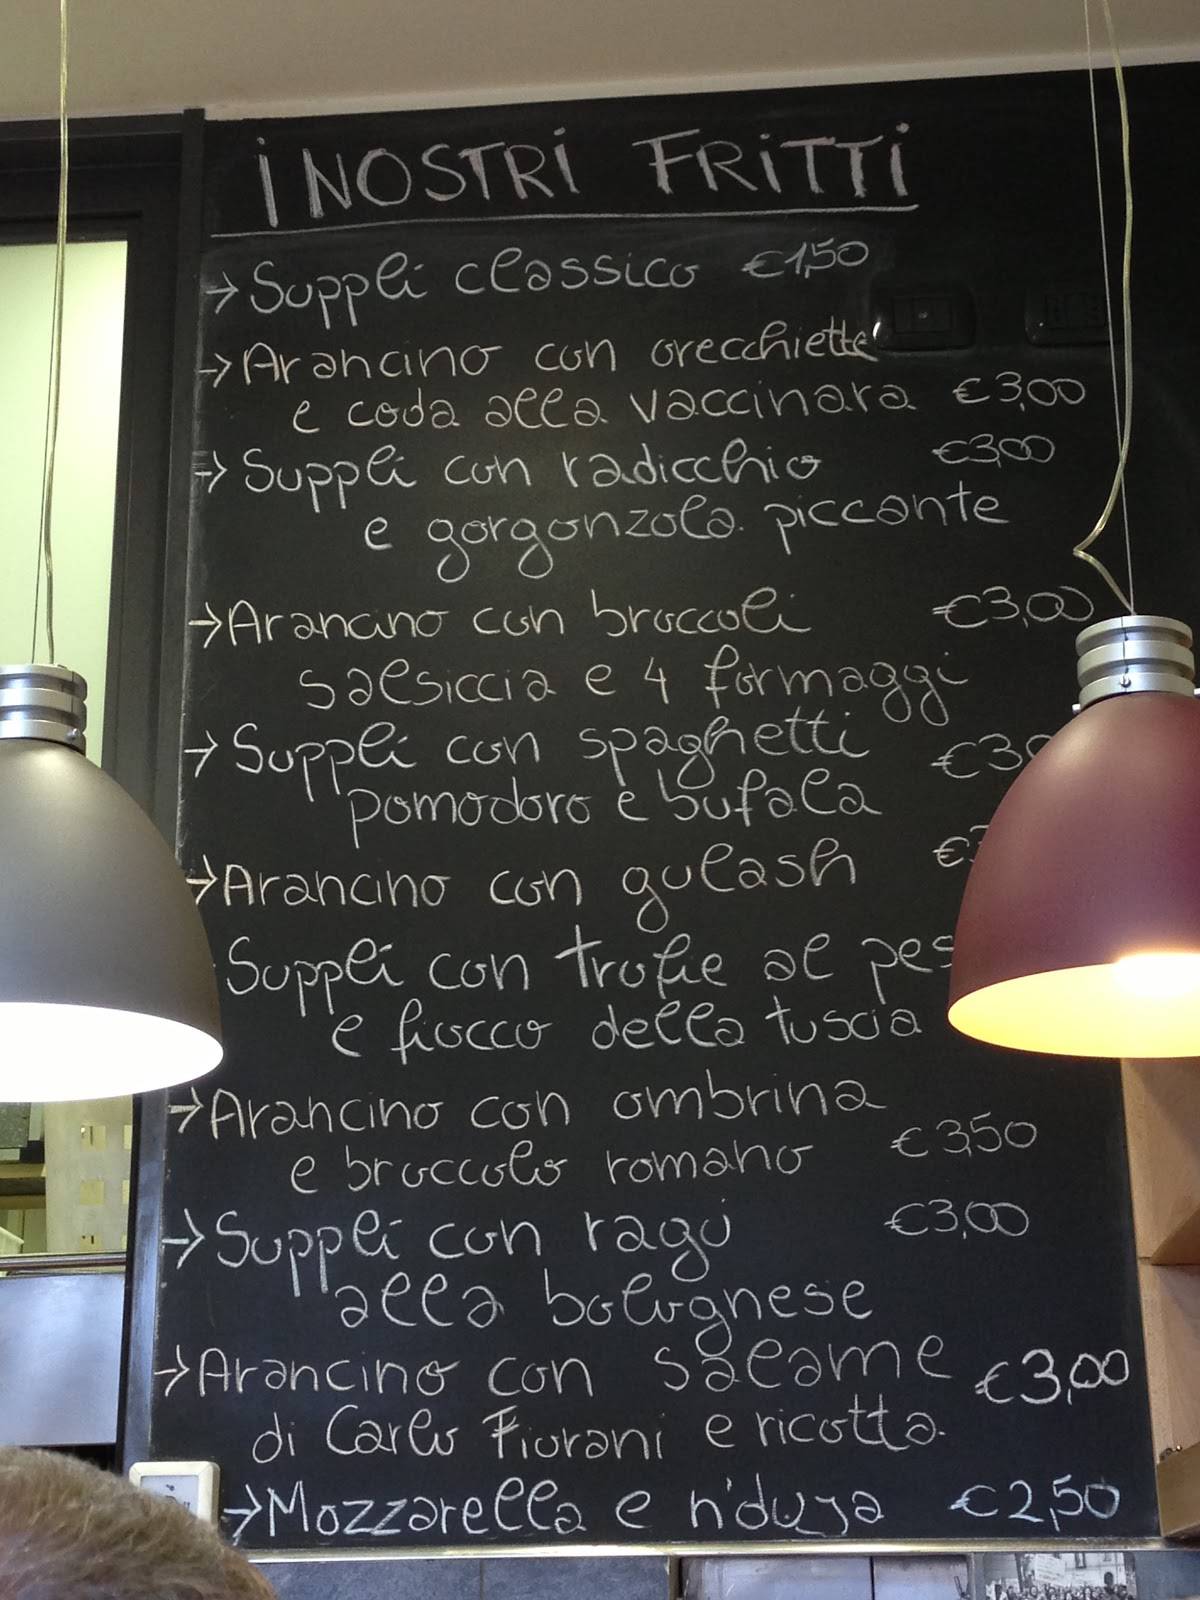 I NOSTRI FRITTI
→ Supplì classico €1,50
→ Arancino con orecchiette
e coda alla vaccinara €3,00
→ Supplì con radicchio €3,00
e gorgonzola piccante
→ Arancino con broccoli €3,00
salsiccia e 4 formaggi
→ Supplì con spaghetti
pomodoro e bufala
→ Arancino con gulash
Supplì con trofie al
e fiocco della tuscia
→ Arancino con ombrina
e broccolo romano €3,50
→ Supplì con ragù €3,00
alla bolognese
→ Arancino con salame €3,00
di Carlo Fiorani e ricotta
→ Mozzarella e n'duja €2,50